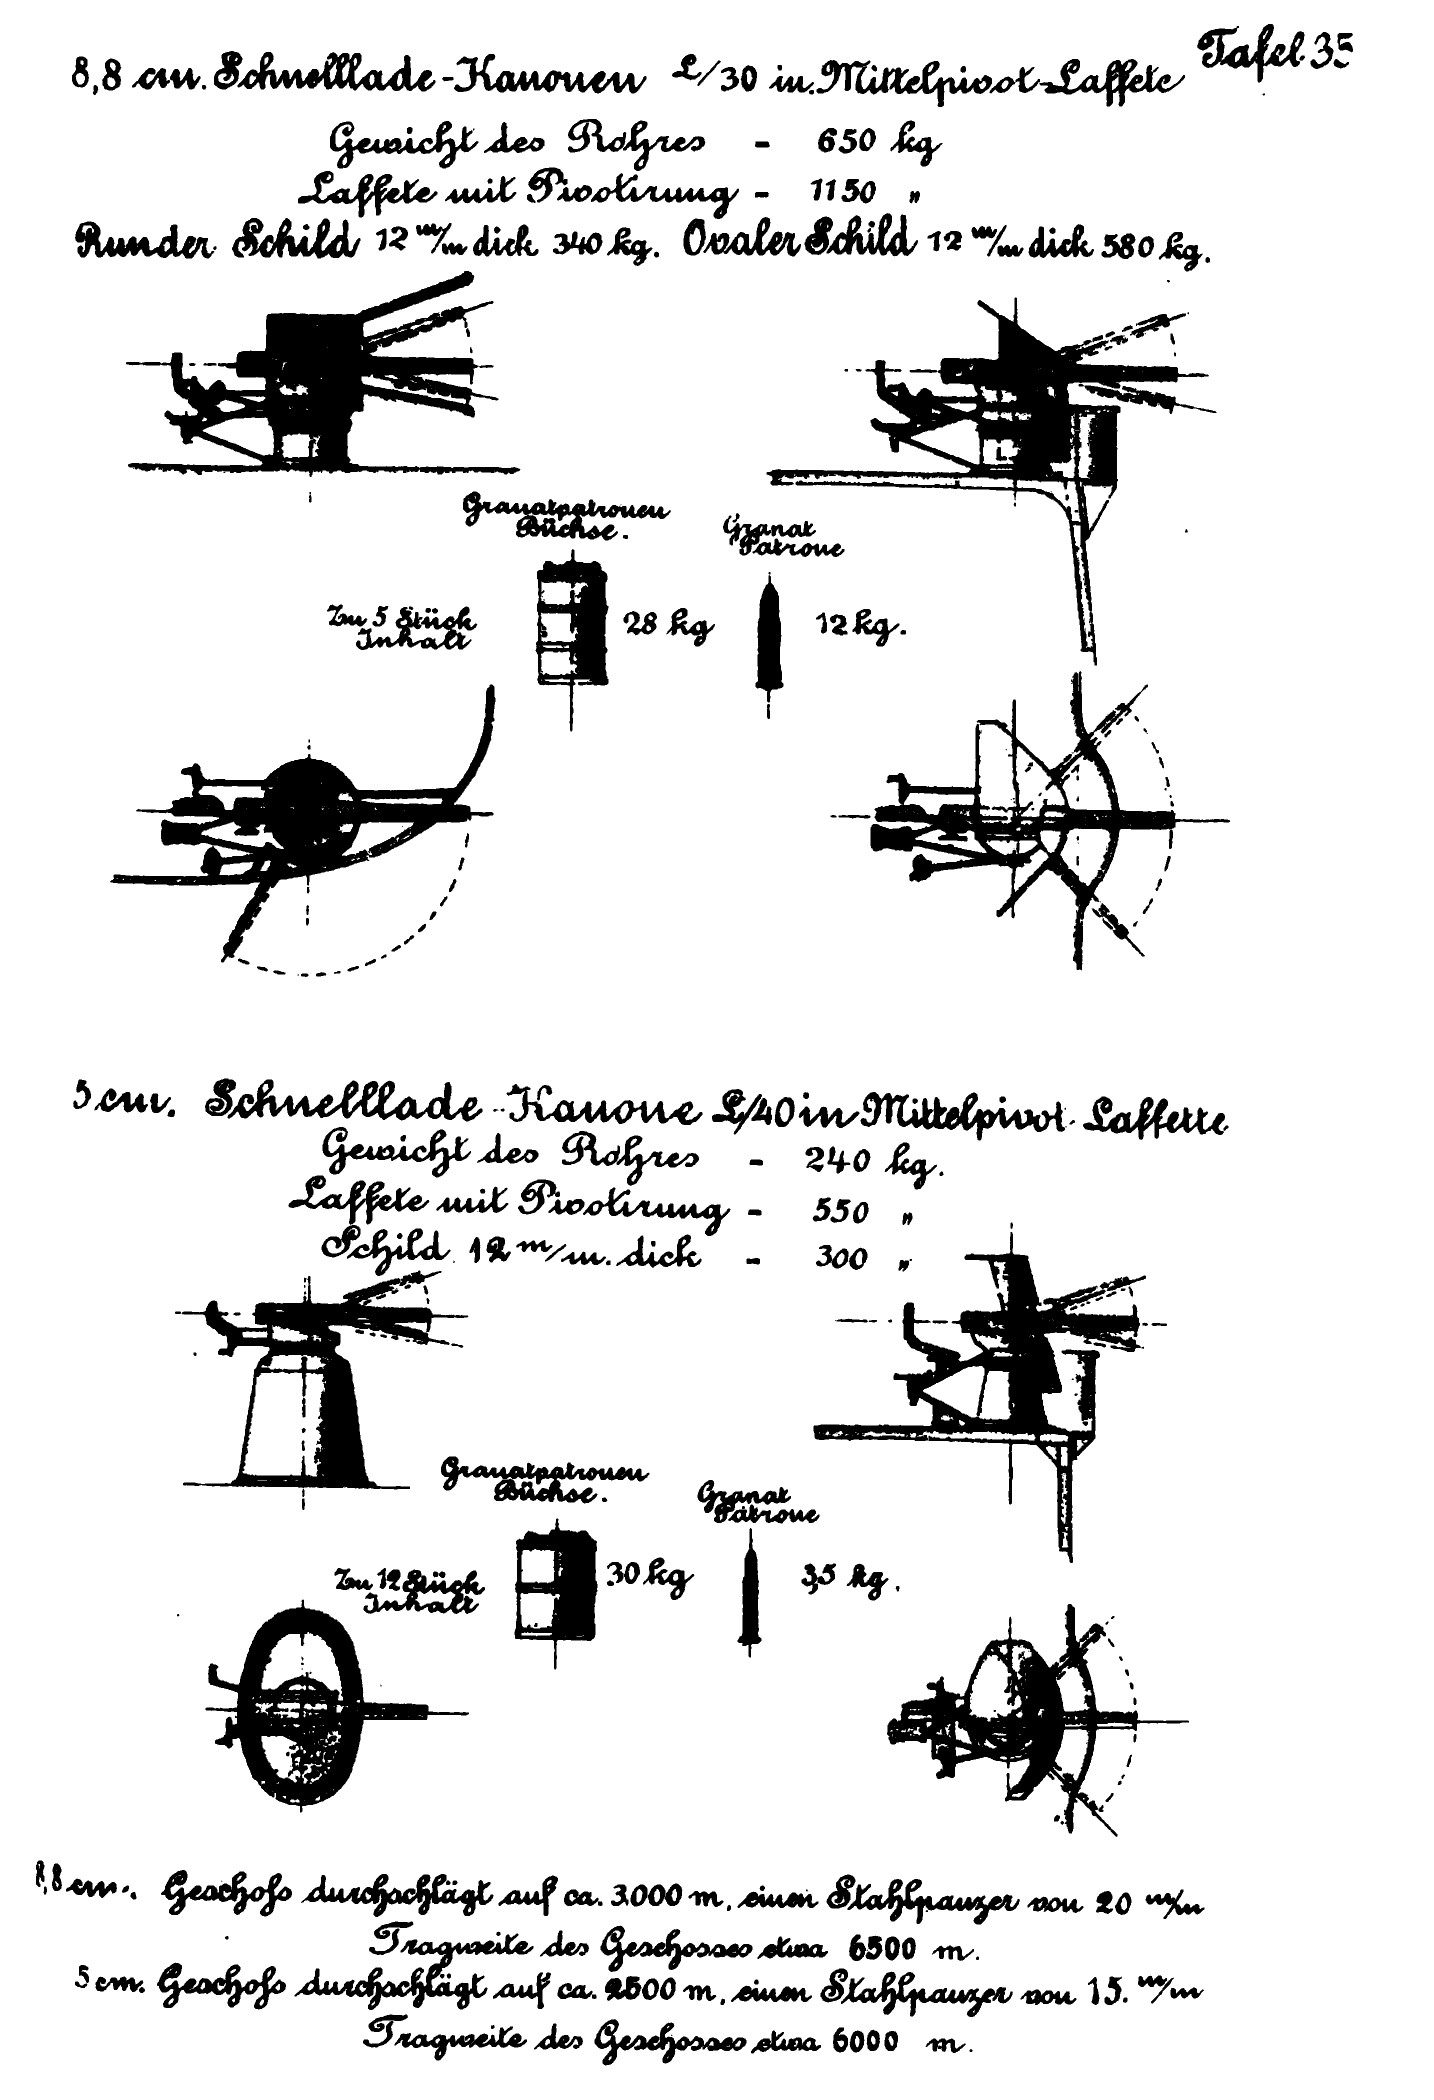 Tafel 35
8,8 cm. Schnelllade-Kanonen L/30 in Mittelpivot-Laffete
Gewicht des Rohres - 650 kg
Laffete mit Pivotirung - 1150 „
Runder Schild 12 m/m dick 340 kg. Ovaler Schild 12 m/m dick 580 kg.
Granatpatronen
Büchse.
Granat
Patrone
Zu 5 Stück
Inhalt
28 kg
12 kg.
5 cm. Schnelllade-Kanone L/40 in Mittelpivot-Laffette
Gewicht des Rohres - 240 kg.
Laffete mit Pivotirung - 550 „
Schild 12 m/m. dick - 300 „
Granatpatronen
Büchse.
Granat
Patrone
Zu 12 Stück
Inhalt
30 kg
3,5 kg.
8,8 cm. Geschoss durchschlägt auf ca. 3.000 m, einen Stahlpanzer von 20 m/m
Tragweite des Geschosses etwa 6500 m.
5 cm. Geschoss durchschlägt auf ca. 2500 m, einen Stahlpanzer von 15. m/m
Tragweite des Geschosses etwa 6000 m.